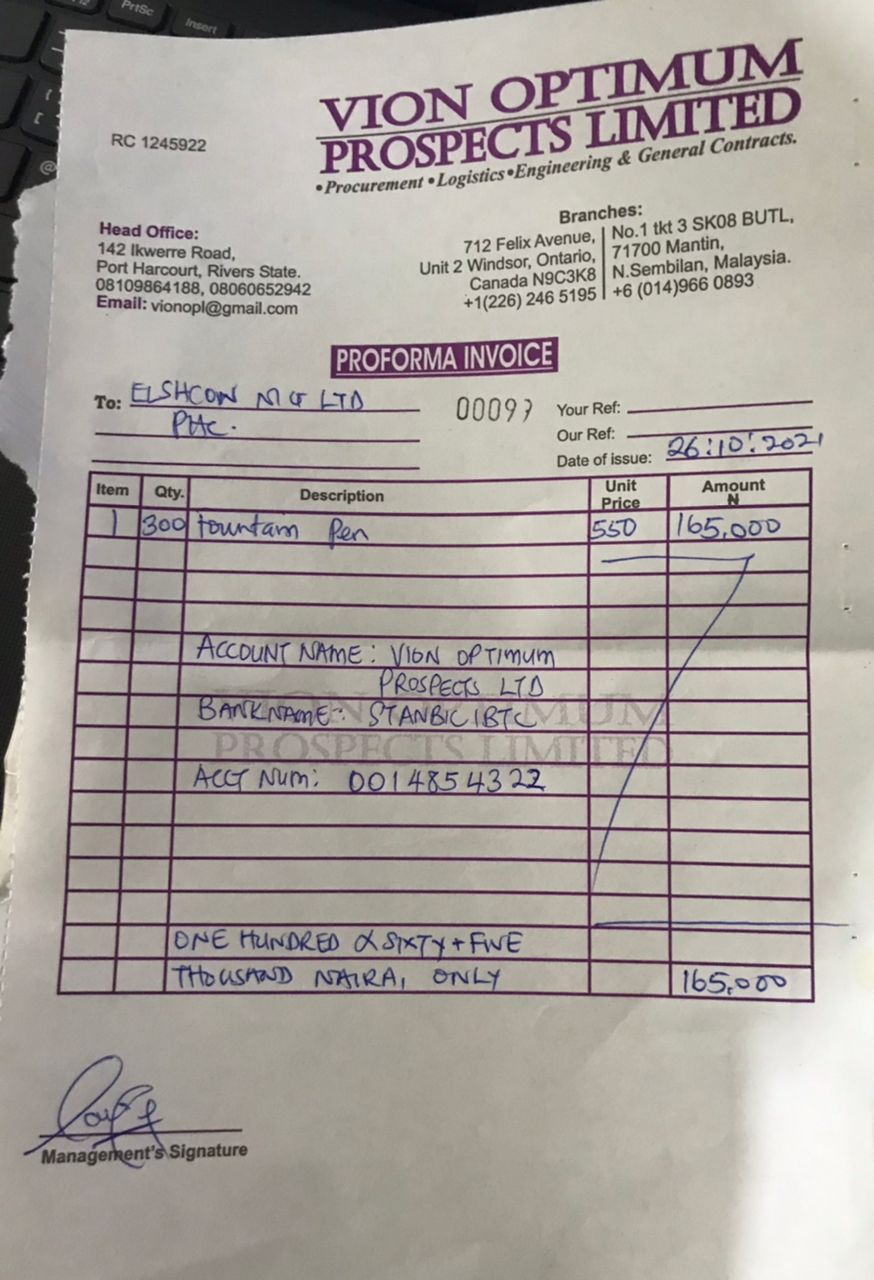 PrtSc
Insert
VION OPTIMUM
PROSPECTS LIMITED
•Procurement •Logistics•Engineering & General Contracts.
RC 1245922
Head Office:
142 Ikwerre Road,
Port Harcourt, Rivers State.
08109864188, 08060652942
Email: vionopl@gmail.com
Branches:
712 Felix Avenue,
Unit 2 Windsor, Ontario,
Canada N9C3K8
+1(226) 246 5195
No.1 tkt 3 SK08 BUTL,
71700 Mantin,
N.Sembilan, Malaysia.
+6 (014)966 0893
PROFORMA INVOICE
To: ELSHCON LTD
PHC.
Your Ref:
Our Ref:
Date of issue: 26:10:2021
Item Qty. Description Unit Price Amount ₦
1 300 fountain Pen 550 165,000
ACCOUNT NAME: VION OPTIMUM
PROSPECTS LTD
BANK NAME: STANBIC IBTC
VION OPTIMUM
PROSPECTS LIMITED
ACCT NUM: 0014854322
ONE HUNDRED & SIXTY + FIVE
THOUSAND NAIRA, ONLY 165,000
Management's Signature